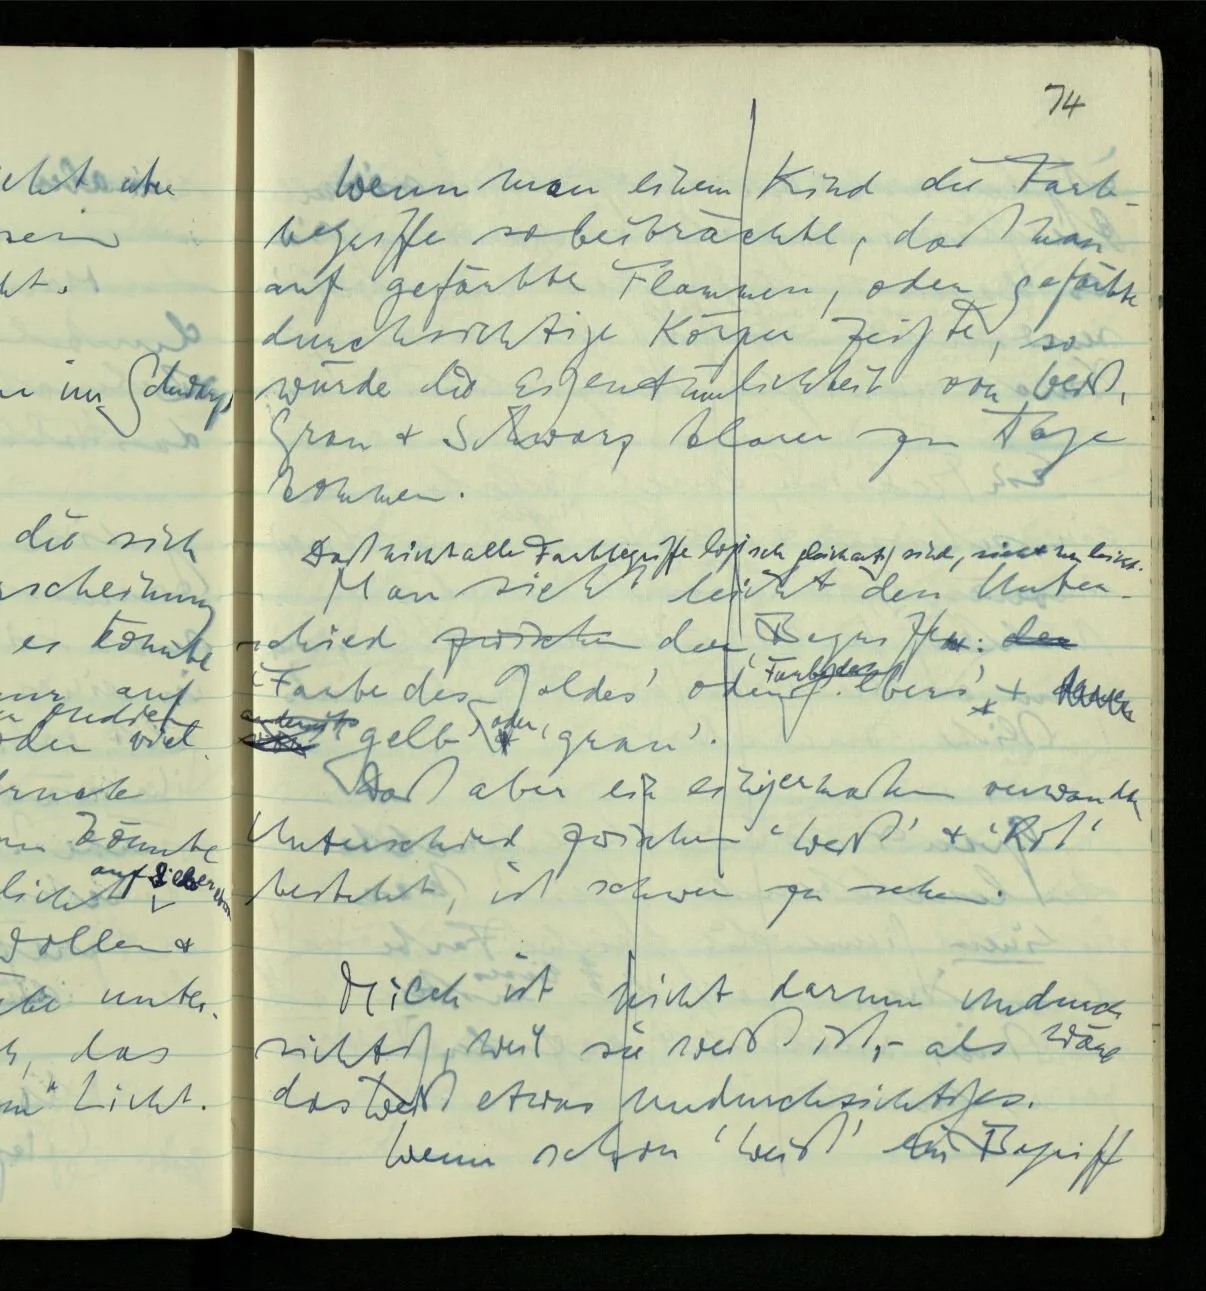 74
icht aber
sein
kt.
in im Schwarz
die sich
rscheinung
es könnte
nur auf
oder viel
könnte
auf Silber
Wollen &
unter-
das
" Licht.
Wenn man einem Kind die Farb-
begriffe so beibrächte, daß man
auf gefärbte Flammen, oder gefärbte
durchsichtige Körper zeigte, so
würde die Eigentümlichkeit von Weiß,
Grau & Schwarz klarer zu Tage
kommen.
Daß nicht alle Farbbegriffe logisch gleichartig sind, sieht man leicht.
Man sieht leicht den Unter-
schied zwischen den Begriffen: der
'Farbe des Goldes' oder 'Farbe des Silbers' &
anderseits gelb' oder 'grau'.
Daß aber ein einigermaßen verwandter
Unterschied zwischen 'Weiß' & 'Rot'
besteht, ist schwer zu sehen.
Milch ist nicht darum undurch-
sichtig, weil sie weiß ist, – als wäre
das Weiß etwas undurchsichtiges.
Wenn schon 'Weiß' ein Begriff